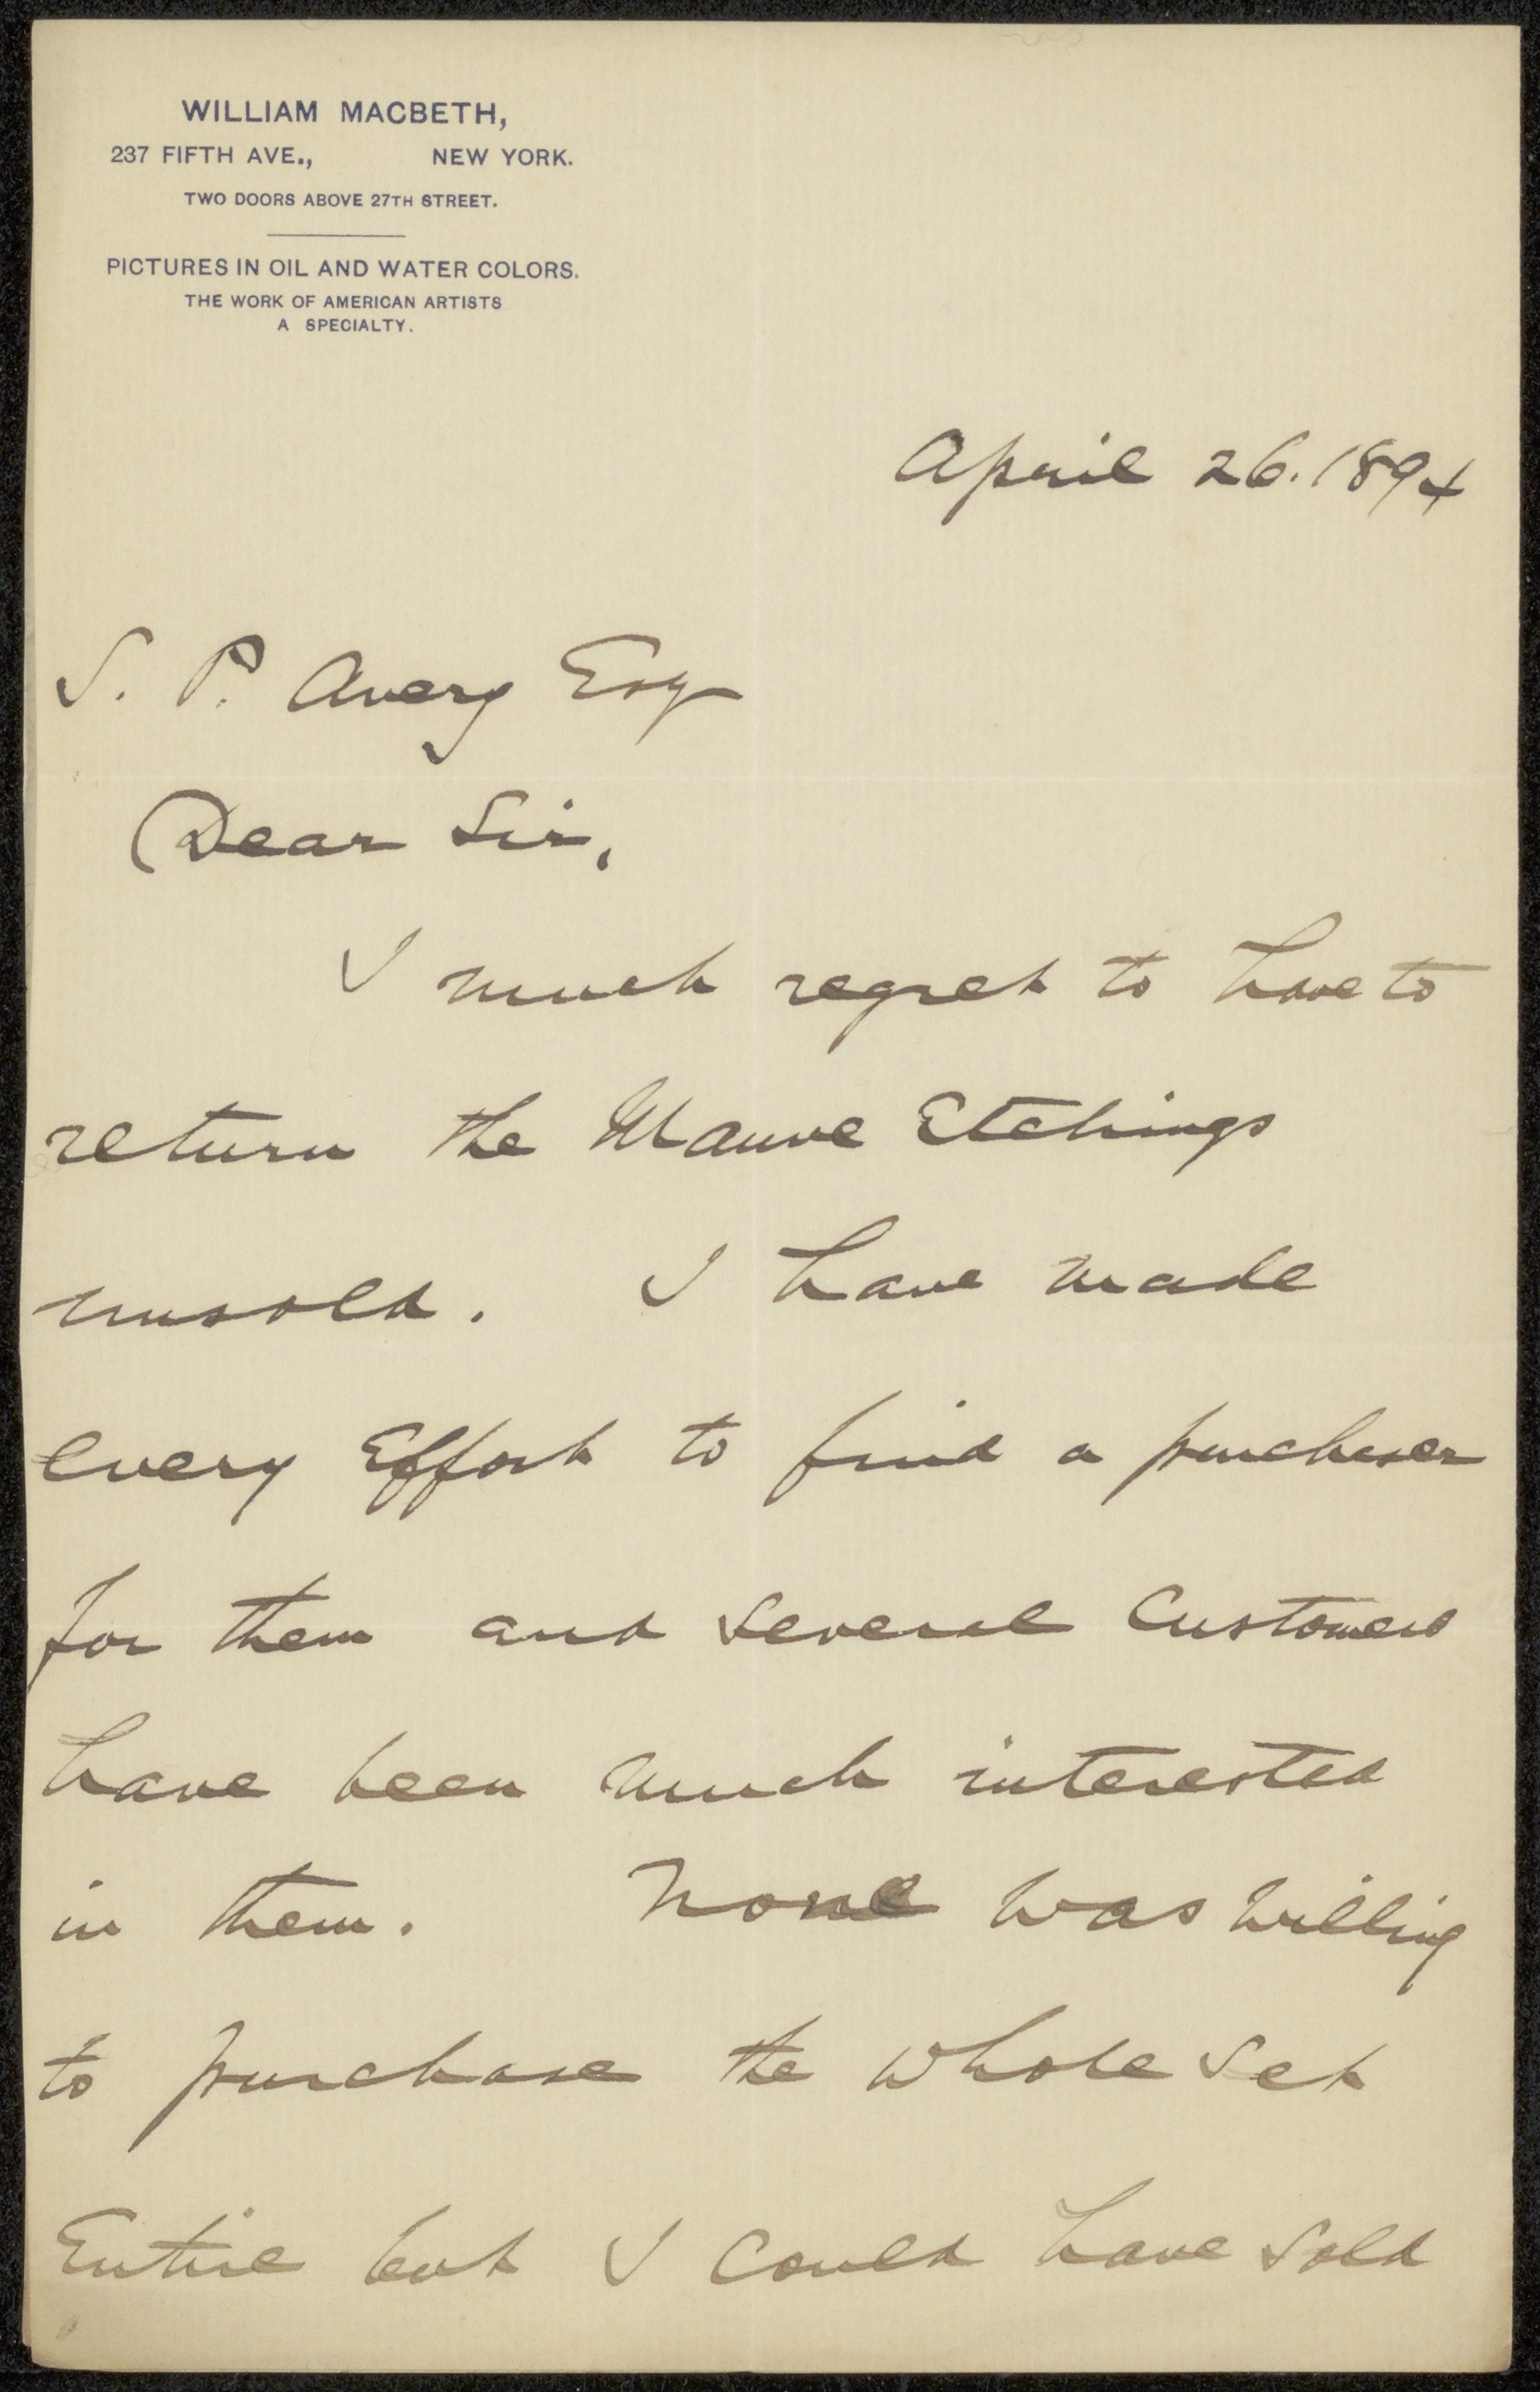 WILLIAM MACBETH,
237 FIFTH AVE., NEW YORK.
TWO DOORS ABOVE 27TH STREET.
PICTURES IN OIL AND WATER COLORS.
THE WORK OF AMERICAN ARTISTS
A SPECIALTY.
April 26. 1894
S. P. Avery Esq
Dear Sir,
I much regret to have to
return the Mauve Etchings
unsold. I have made
every Effort to find a purchaser
for them and several Customers
have been much interested
in them. None was willing
to purchase the whole set
Entire but I could have sold